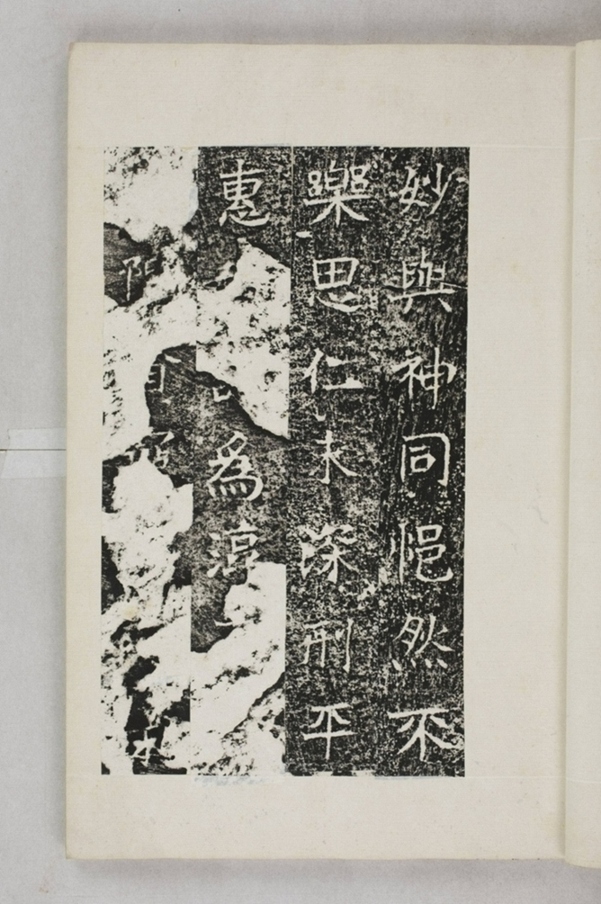 妙與神同悒然不
樂思仁未深刑平
惠為淳